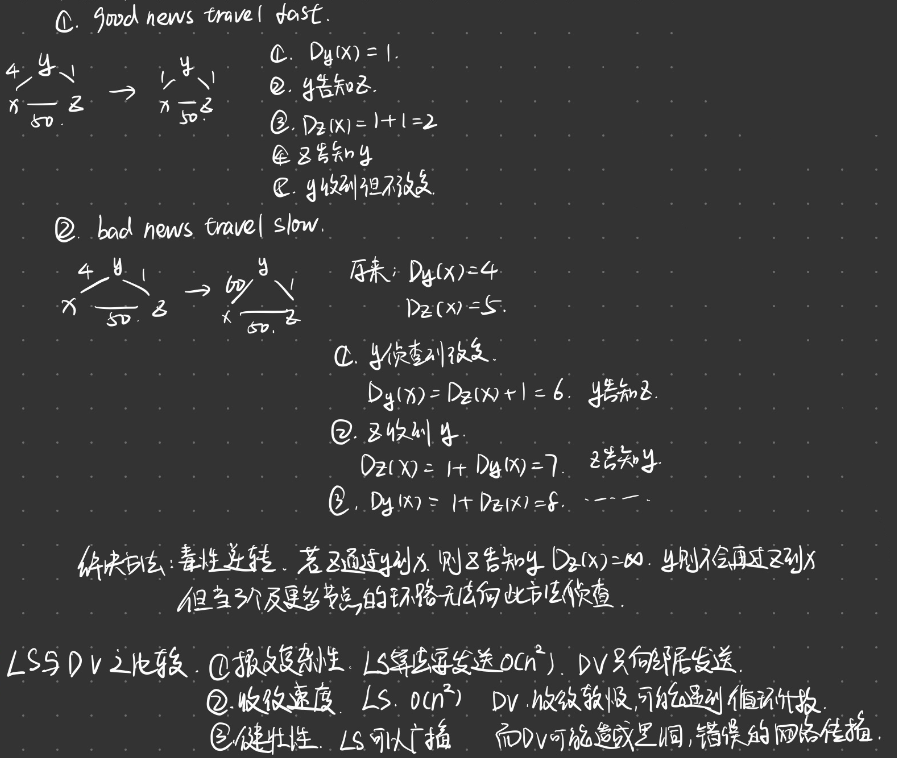 ①. good news travel fast.
4 y 1
x 50. z
→
1 y 1
x 50. z
①. Dy(x) = 1.
②. y告知z.
③. Dz(x) = 1+1=2
④ z告知y
⑤. y收到但不改变.
②. bad news travel slow.
4 y 1
x 50. z
→
60 y 1
x 50. z
原来: Dy(x)=4
Dz(x)=5.
①. y侦查到改变.
Dy(x) = Dz(x)+1 = 6. y告知z.
②. z收到y.
Dz(x) = 1+ Dy(x)=7. z告知y.
③. Dy(x) = 1+ Dz(x)=8. ……
解决方法: 毒性逆转. 若z通过y到x, 则z告知y Dz(x)=∞. y则不会再过z到x
但当3个及更多节点的环路无法向此方法侦查.
LS与DV之比较. ①报文复杂性. LS算法要发送O(n²). DV只向邻居发送.
②.收敛速度. LS. O(n²) DV.收敛较慢,可能遇到循环计数.
③健壮性. LS可以广播 而DV可能造成黑洞,错误的网络传播.